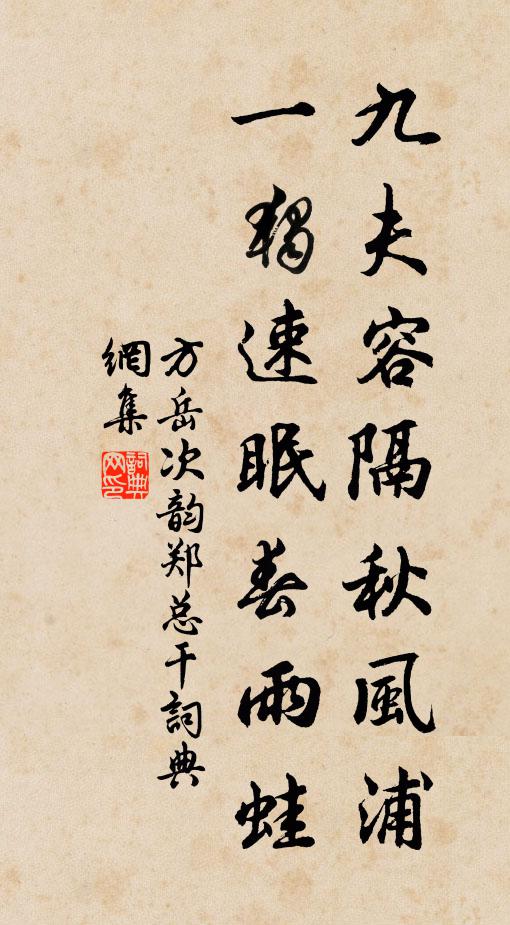 九夫容隔秋風浦
一獨速眠春雨蛙
方岳次韵郑总干詞典
網集
詞典
网印